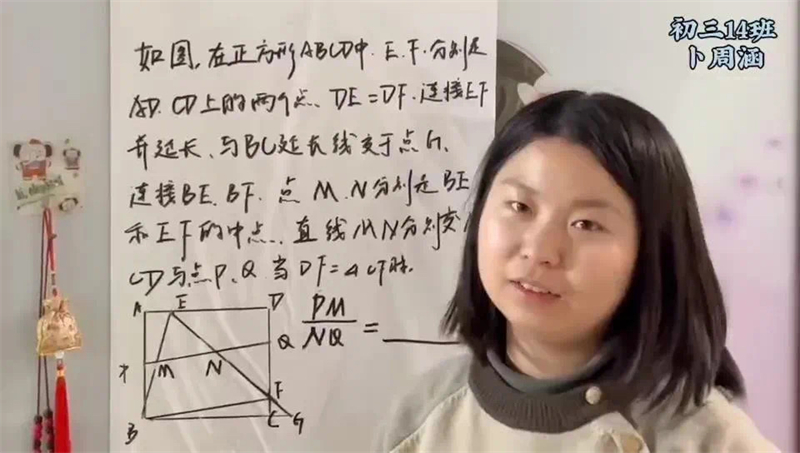 初三14班
卜周涵
如图,在正方形ABCD中.E.F.分别是
AD.CD上的两个点、DE=DF.连接EF
并延长、与BC延长线交于点G.
连接BE.BF.点M.N分别是BE
和EF的中点、直线MN分别交
CD与点P、Q 当DF=4CF时.
PM
NQ
=
A E D
Q
M N
F
B C G